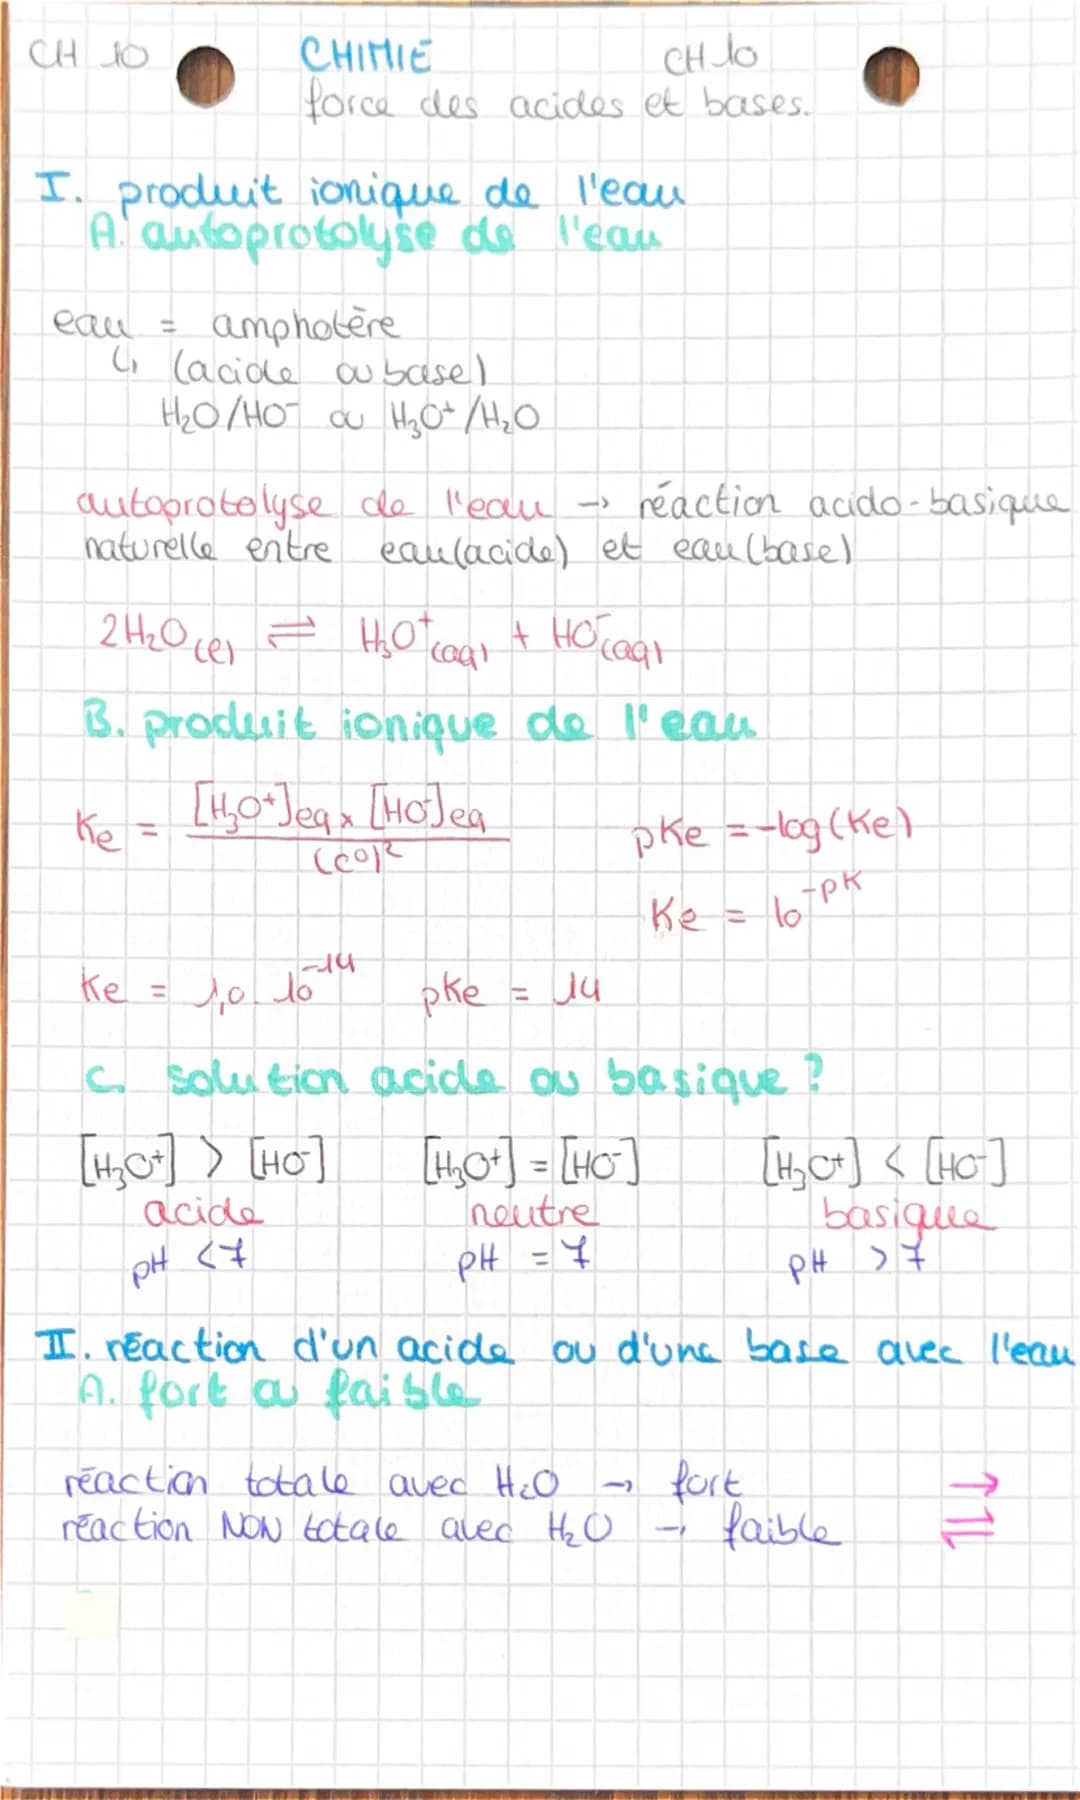 CH 10 CHIMIE CH 10
force des acides et bases.
I. produit ionique de l'eau
A. autoprotolyse de l'eau
eau = amphotère
↳ (acide ou base)
H₂O/HO⁻ ou H₃O⁺/H₂O
autoprotolyse de l'eau → réaction acido-basique
naturelle entre eau(acide) et eau(base)
2H₂O(l) ⇌ H₃O⁺(aq) + HO⁻(aq)
B. produit ionique de l'eau
Ke = [H₃O⁺]eq × [HO⁻]eq / (c⁰)² pKe = -log(Ke)
Ke = 10⁻ᵖᴷ
Ke = 1,0. 10⁻¹⁴ pKe = 14
C. solution acide ou basique ?
[H₃O⁺] > [HO⁻] [H₃O⁺] = [HO⁻] [H₃O⁺] < [HO⁻]
acide neutre basique
pH < 7 pH = 7 pH > 7
II. réaction d'un acide ou d'une base avec l'eau
A. fort ou faible
réaction totale avec H₂O → fort →
réaction NON totale avec H₂O → faible ⇌